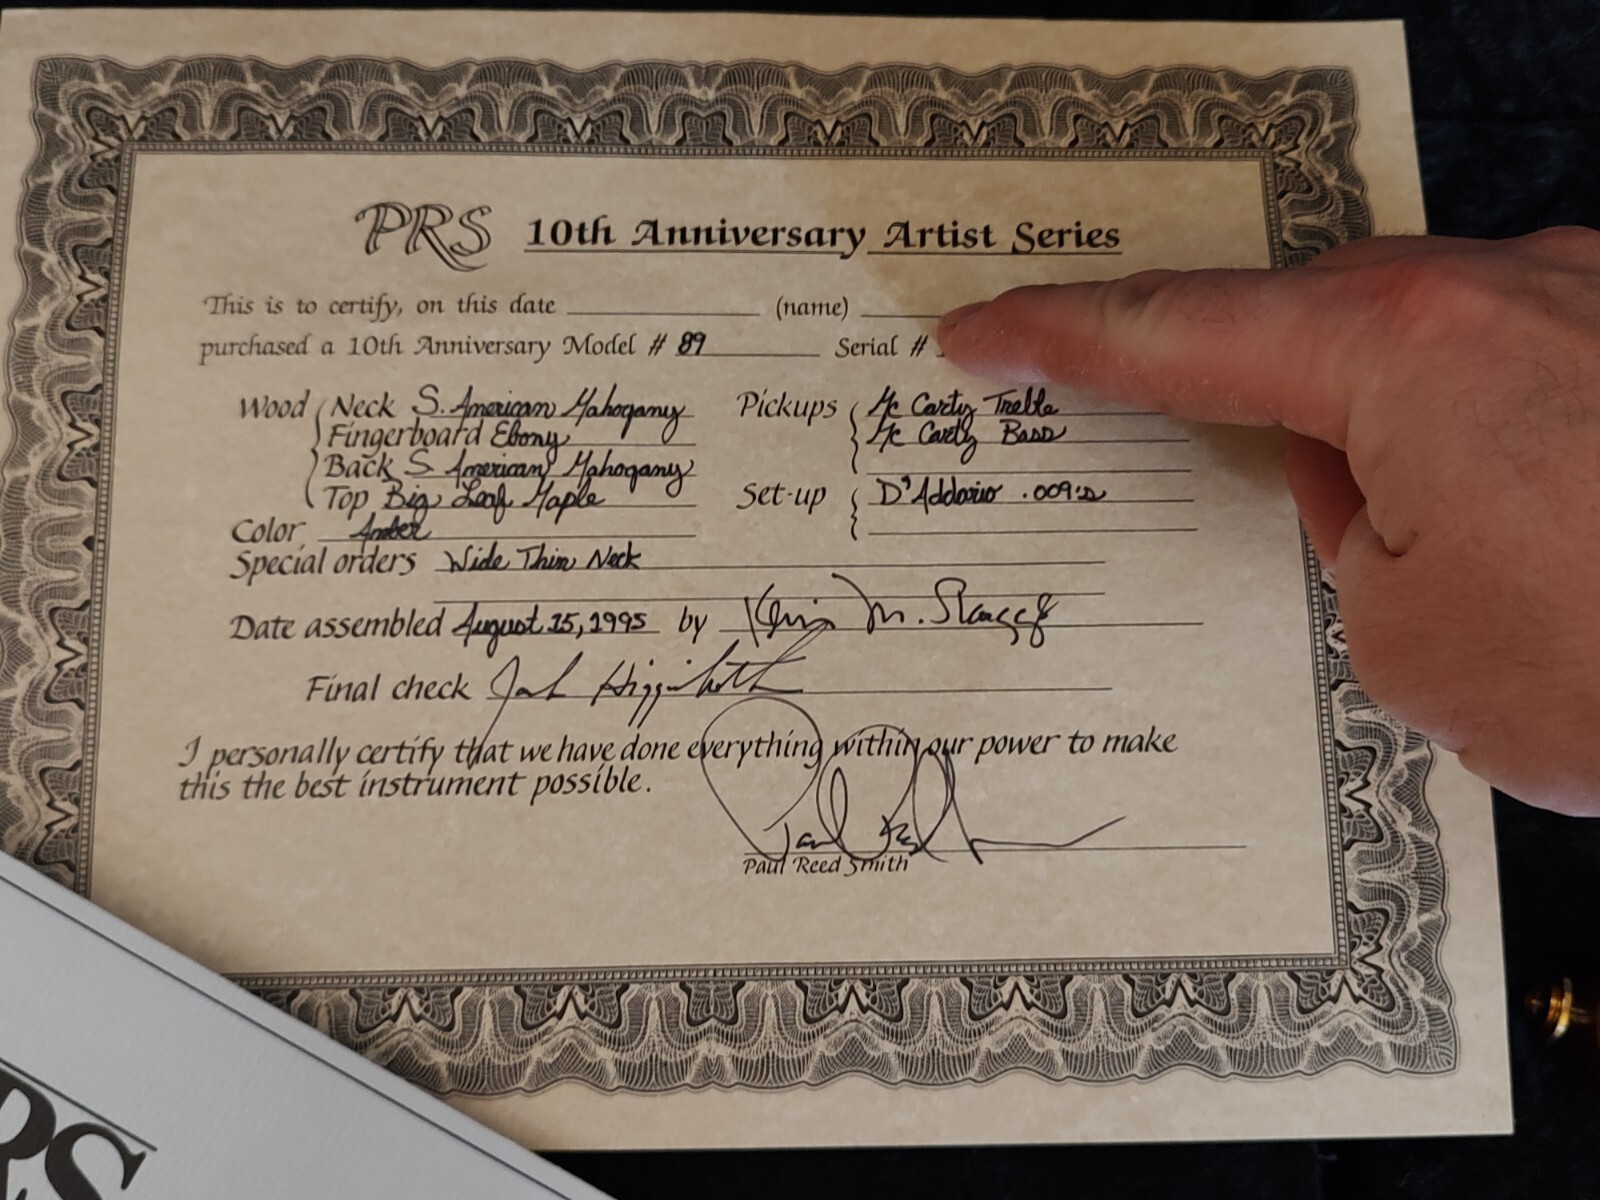 PRS 10th Anniversary Artist Series
This is to certify, on this date (name)
purchased a 10th Anniversary Model # 89 Serial #
Wood Neck S. American Mahogany Pickups Mc Carty Treble
Fingerboard Ebony Mc Carty Bass
Back S American Mahogany
Top Big Leaf Maple Set-up D'Addario .009's
Color Amber
Special orders Wide Thin Neck
Date assembled August 25, 1995 by Kevin M.
Final check Jack Higginbotham
I personally certify that we have done everything within our power to make
this the best instrument possible.
Paul Reed Smith
RS